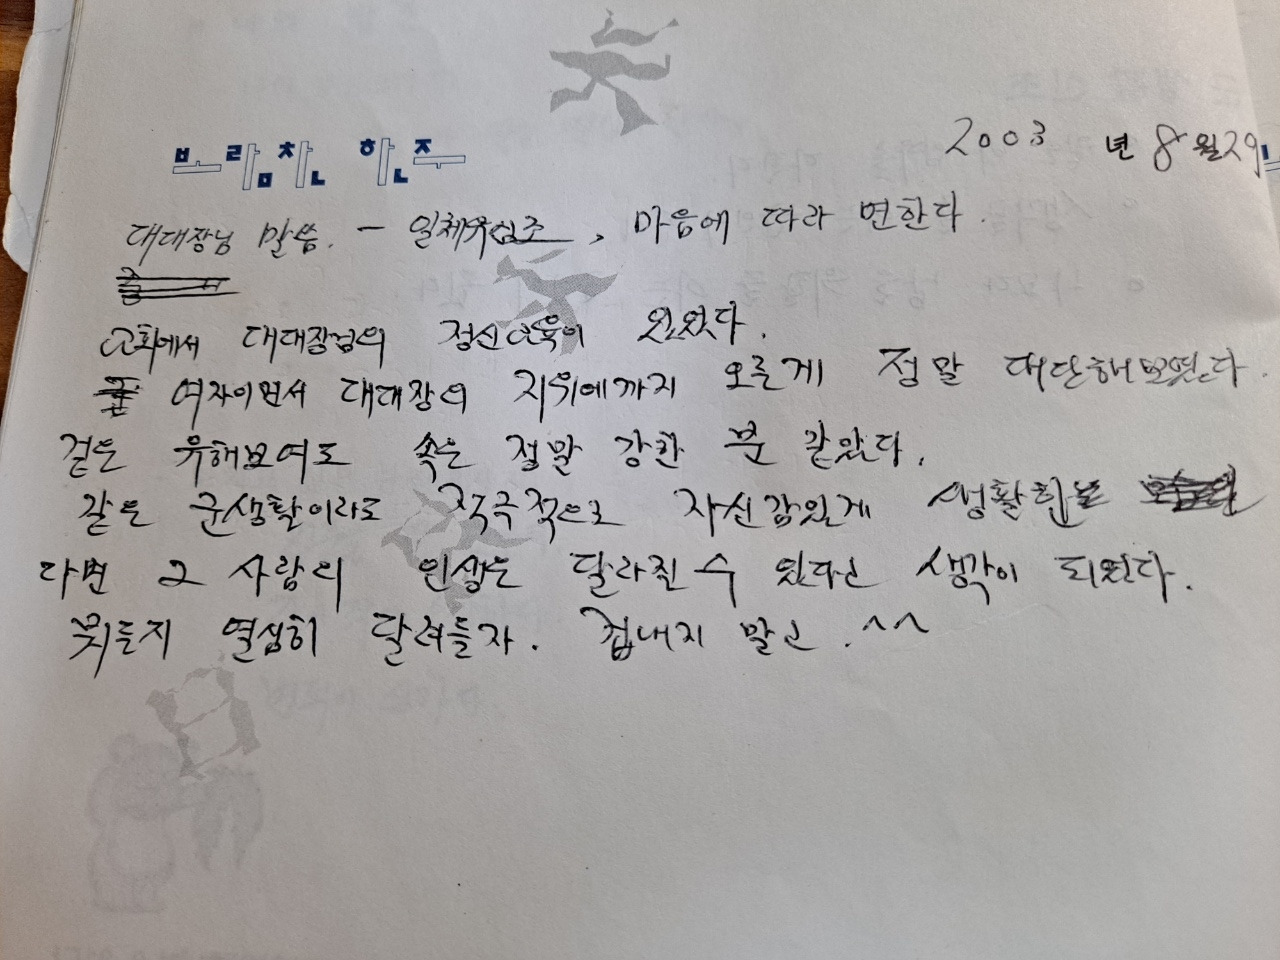 2003 년 8 월 29
보람찬 한 주
대대장님 말씀. - 일체유심조, 마음에 따라 변한다.
교회에서 대대장님의 정신교육이 있었다.
여자이면서 대대장의 지위에까지 오른게 정말 대단해보였다.
겉은 유해보여도 속은 정말 강한 분 같았다.
같은 군생활이라도 적극적으로 자신감있게 생활한
다면 그 사람의 인생은 달라질 수 있다고 생각이 되었다.
뭐든지 열심히 달려들자. 겁내지 말고. ^^